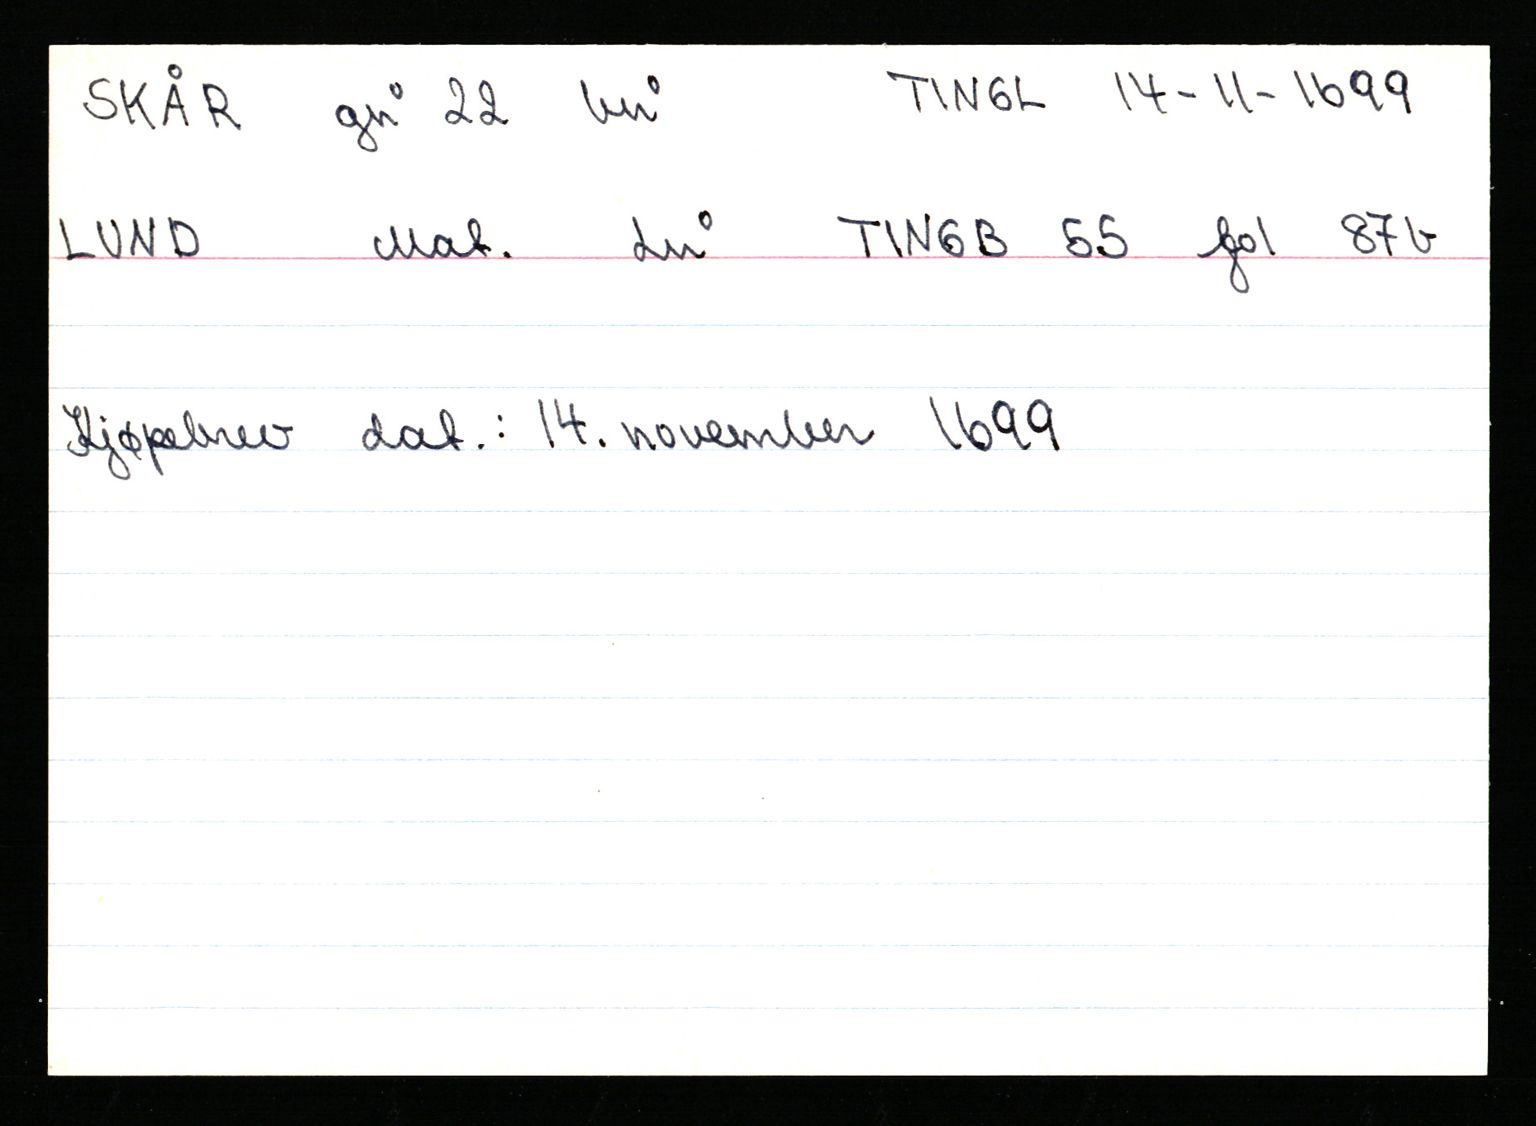 SKÅR gn° 22 bn° TINGL 14-11-1699
LUND Mat. Ln° TINGB 55 fol 87b
Kjøpebrev dat.: 14. november 1699